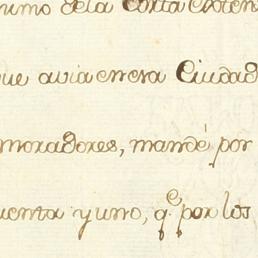 numo dela Corta
que avia en esa Ciudad
moradores, mandé por
uenta y uno, q.e por los